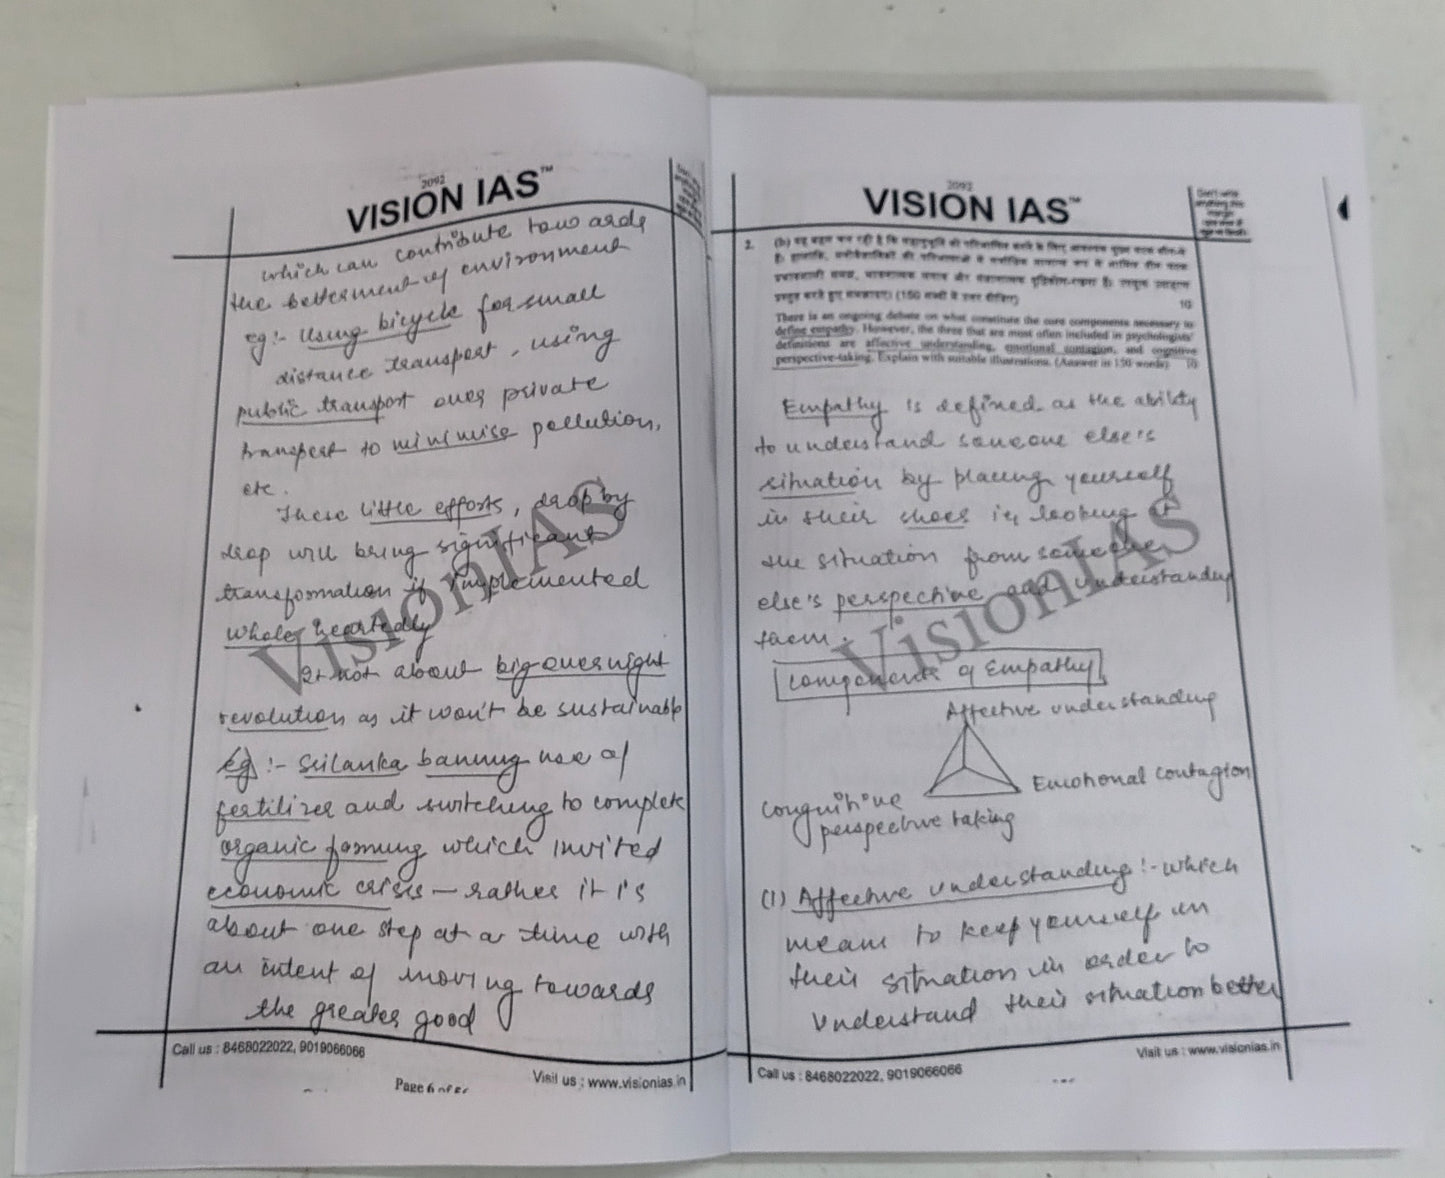 2092
VISION IAS™
which can contribute towards
the betterment of environment
eg:- Using bicycle for small
distance transport, using
public transport over private
transport to minimise pollution,
etc.
These little efforts, drop by
drop will bring significant
transformation if implemented
whole heartedly
It not about big overnight
revolution as it won't be sustainable
eg :- Srilanka banning use of
fertilizer and switching to complete
organic farming which invited
economic crisis – rather it is
about one step at a time with
an intent of moving towards
the greater good
Call us : 8468022022, 9019066066
Visit us : www.visionias.in
Page 6 of
VisionIAS
2092
VISION IAS™
Don't write anything this margin
2.
(150 शब्दों में उत्तर दीजिए)
10
There is an ongoing debate on what constitute the core components necessary to
define empathy. However, the three that are most often included in psychologists'
definitions are affective understanding, emotional contagion, and cognitive
perspective-taking. Explain with suitable illustrations. (Answer in 150 words) 10
Empathy is defined as the ability
to understand someone else's
situation by placing yourself
in their shoes ie, looking at
the situation from someone
else's perspective and understanding
them.
Components of Empathy
Affective understanding
Emotional contagion
Conguitive
perspective taking
(1) Affective understanding :- which
means to keep yourself in
their situation in order to
understand their situation better
VisionIAS
Call us : 8468022022, 9019066066
Visit us : www.visionias.in